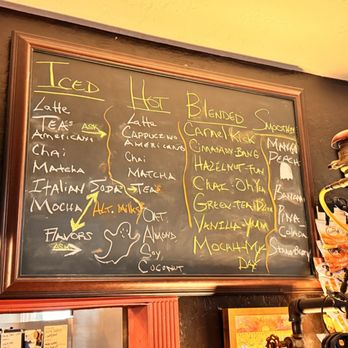 Iced
Latte
Teas ASK
Americano
Chai
Matcha
Italian Soda
Mocha
Flavors
ASK
Hot
Latte
Cappuccino
Americano
Chai
Matcha
Tea
Alt. Milks
Oat
Almond
Soy
Coconut
Blended
Carmel Kick
Cinnamon-Bang
Hazelnut-Fun
Chai-Oh Ya
Green-Tea
Vanilla-Yum
Mocha-My
Day
Smoothies
Mango
Peach
Banana
Pina
Colada
Strawberry